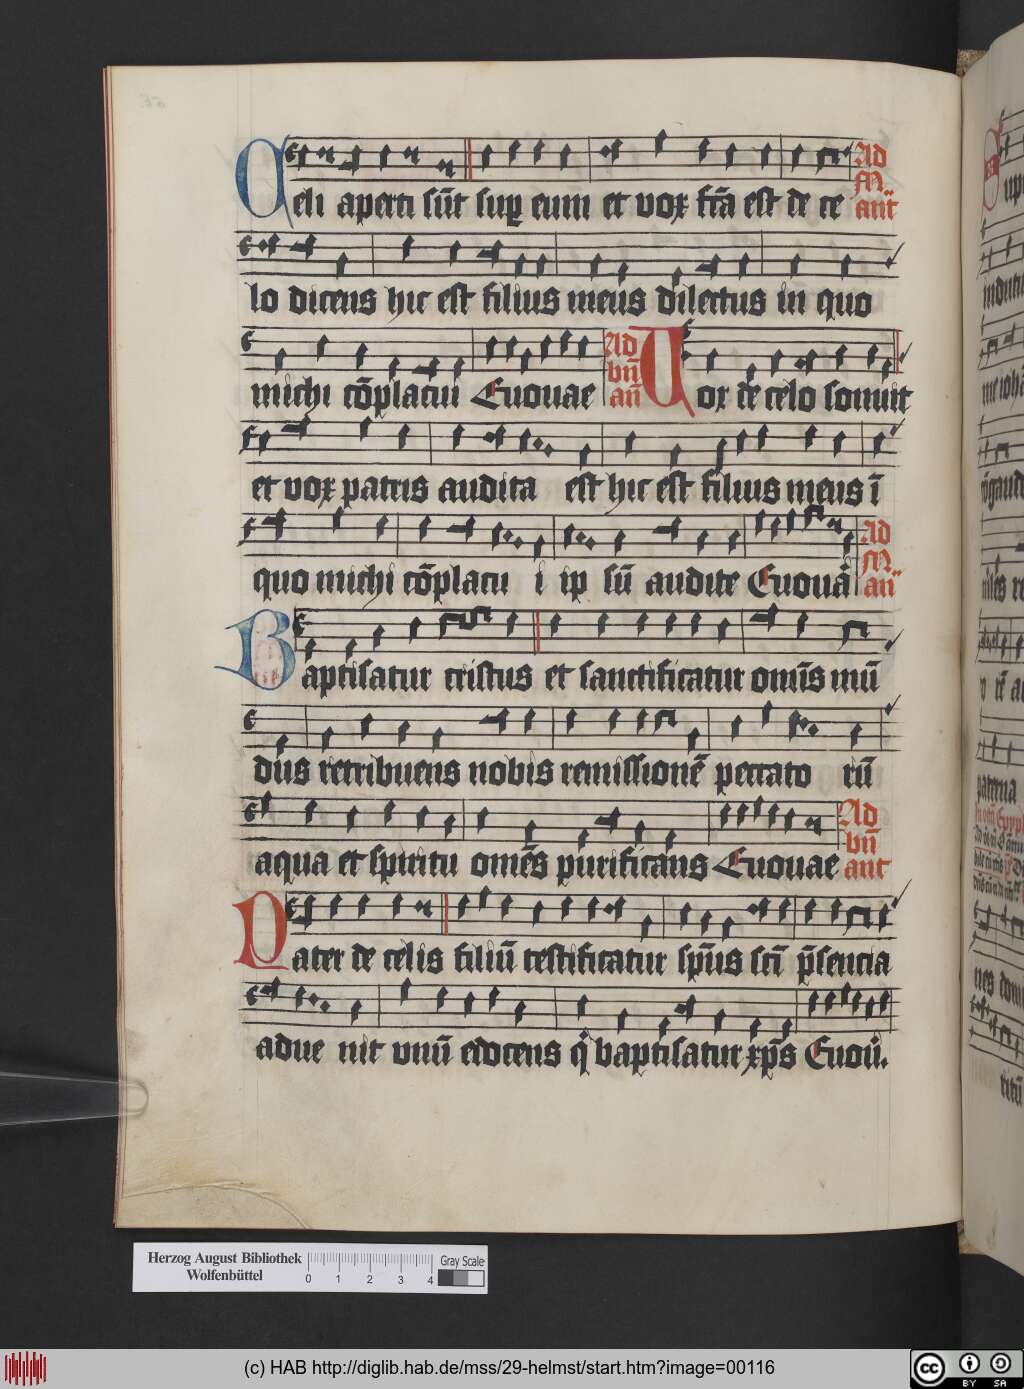 Celi aperti sūt suꝑ eum et vox fc̄a est de ce Ad M. ant̄
lo dicens hic est filius meus dilectus in quo
michi cōplacuit Euouae Ad bn̄ an̄ Vox de celo sonuit
et vox patris audita est hic est filius meus ī
quo michi cōplacu i ip sū audite Euouā Ad M. an̄
Baptisatur cristus et sanctificatur omīs mū
dus retribuens nobis remissionē peccato rū
aqua et spiritu omēs purificans Euouae Ad bn̄ ant
Pater de celis filiū testificatur sp̄us sc̄i p̄sencia
adue nit vnū edocens q̇ baptisatur xp̄s Euoū.
Herzog August Bibliothek
Wolfenbüttel
0 1 2 3 4
Gray Scale
(c) HAB http://diglib.hab.de/mss/29-helmst/start.htm?image=00116
cc BY SA